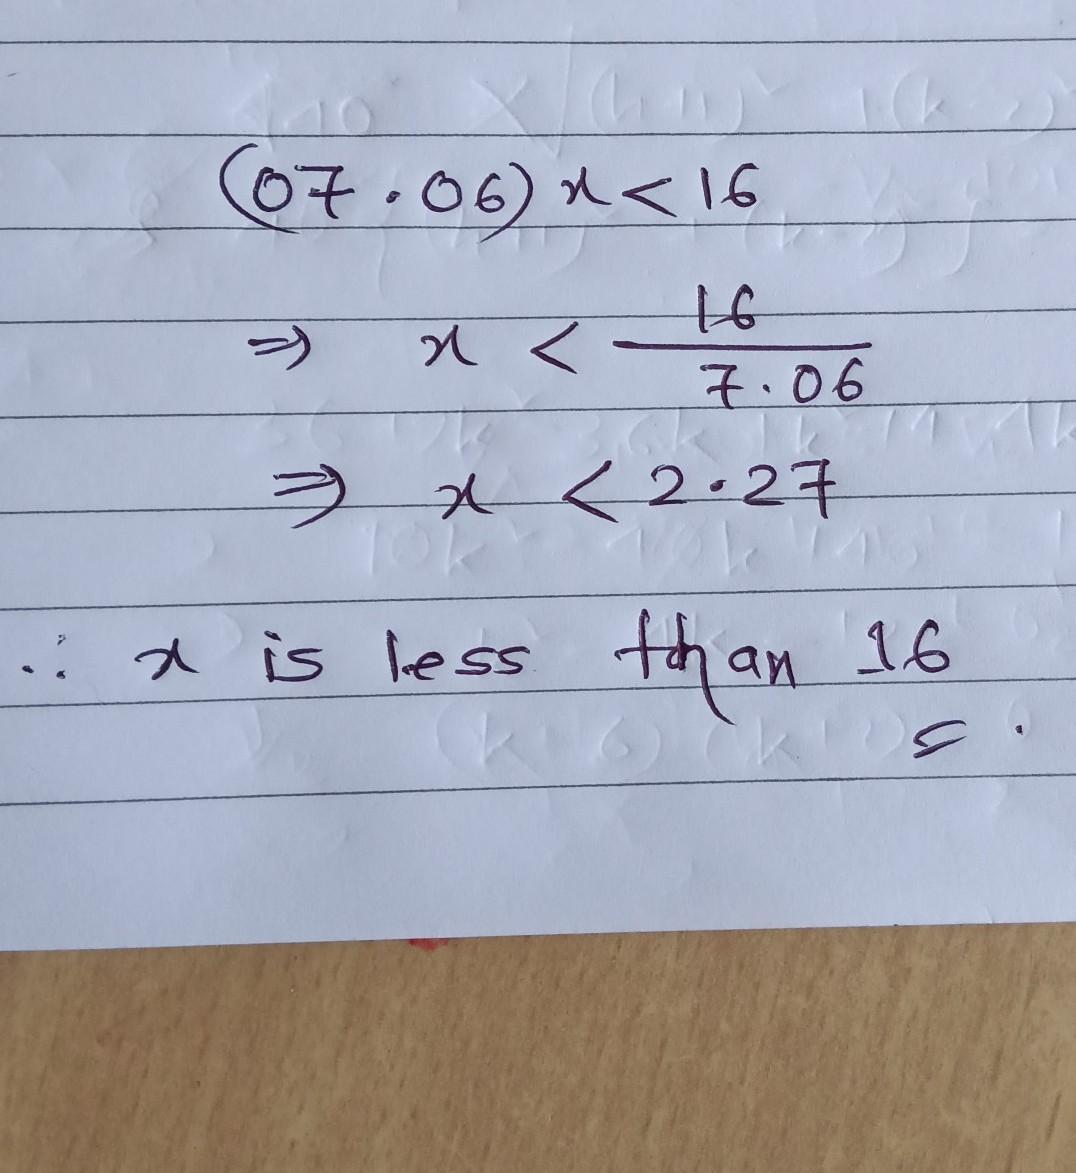 (07.06) x < 16
⇒ x < 16/7.06
⇒ x < 2.27
∴ x is less than 16